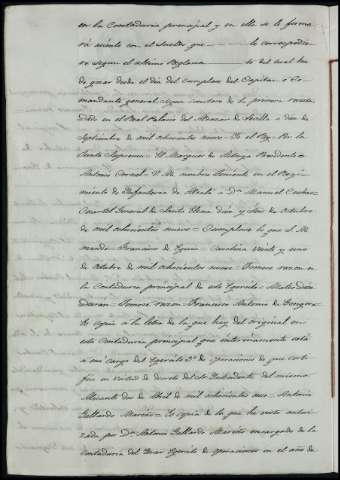 en la Contaduria principal y en ella se le forma
rá asiento con el sueldo que le correspondie
re segun el ultimo Reglamento del cual ha
de gozar desde el dia del cumplase del Capitan o Co
mandante general segun constare de la primera revista
Dado en el Real Palacio del Alcazar de Sevilla a diez de
Septiembre de mil ochocientos nueve. Yo el Rey. Por la
Junta Suprema. El Marques de Astorga Presidente
Antonio Cornel. V. M. nombra Teniente en el Regi
miento de Infanteria de Alcalá a Dn. Manuel
Cuartel General de Santa Elena diez y seis de octubre
de mil ochocientos nueve. Cumplase lo que el Rey
manda. Francisco de Eguia. Carolina veinte y uno
de octubre de mil ochocientos nueve. Tomese razon en
la Contaduria principal de este Egercito.
Tomose razon. Francisco Antonio de Gongora
Es copia á la letra de la que hay del original en
esta Contaduria principal que interinamente está
a mi cargo del Egercito 3º de operaciones de que certi
fico en virtud de decreto del Sr. Yntendente del mismo
Alicante dos de Abril de mil ochocientos once. Antonio
Gallardo Marcos. Es copia de la que ha visto autori
zada por Dn. Antonio Gallardo Marcos encargado de la
Contaduria del Tercer Egercito de operaciones en el año de